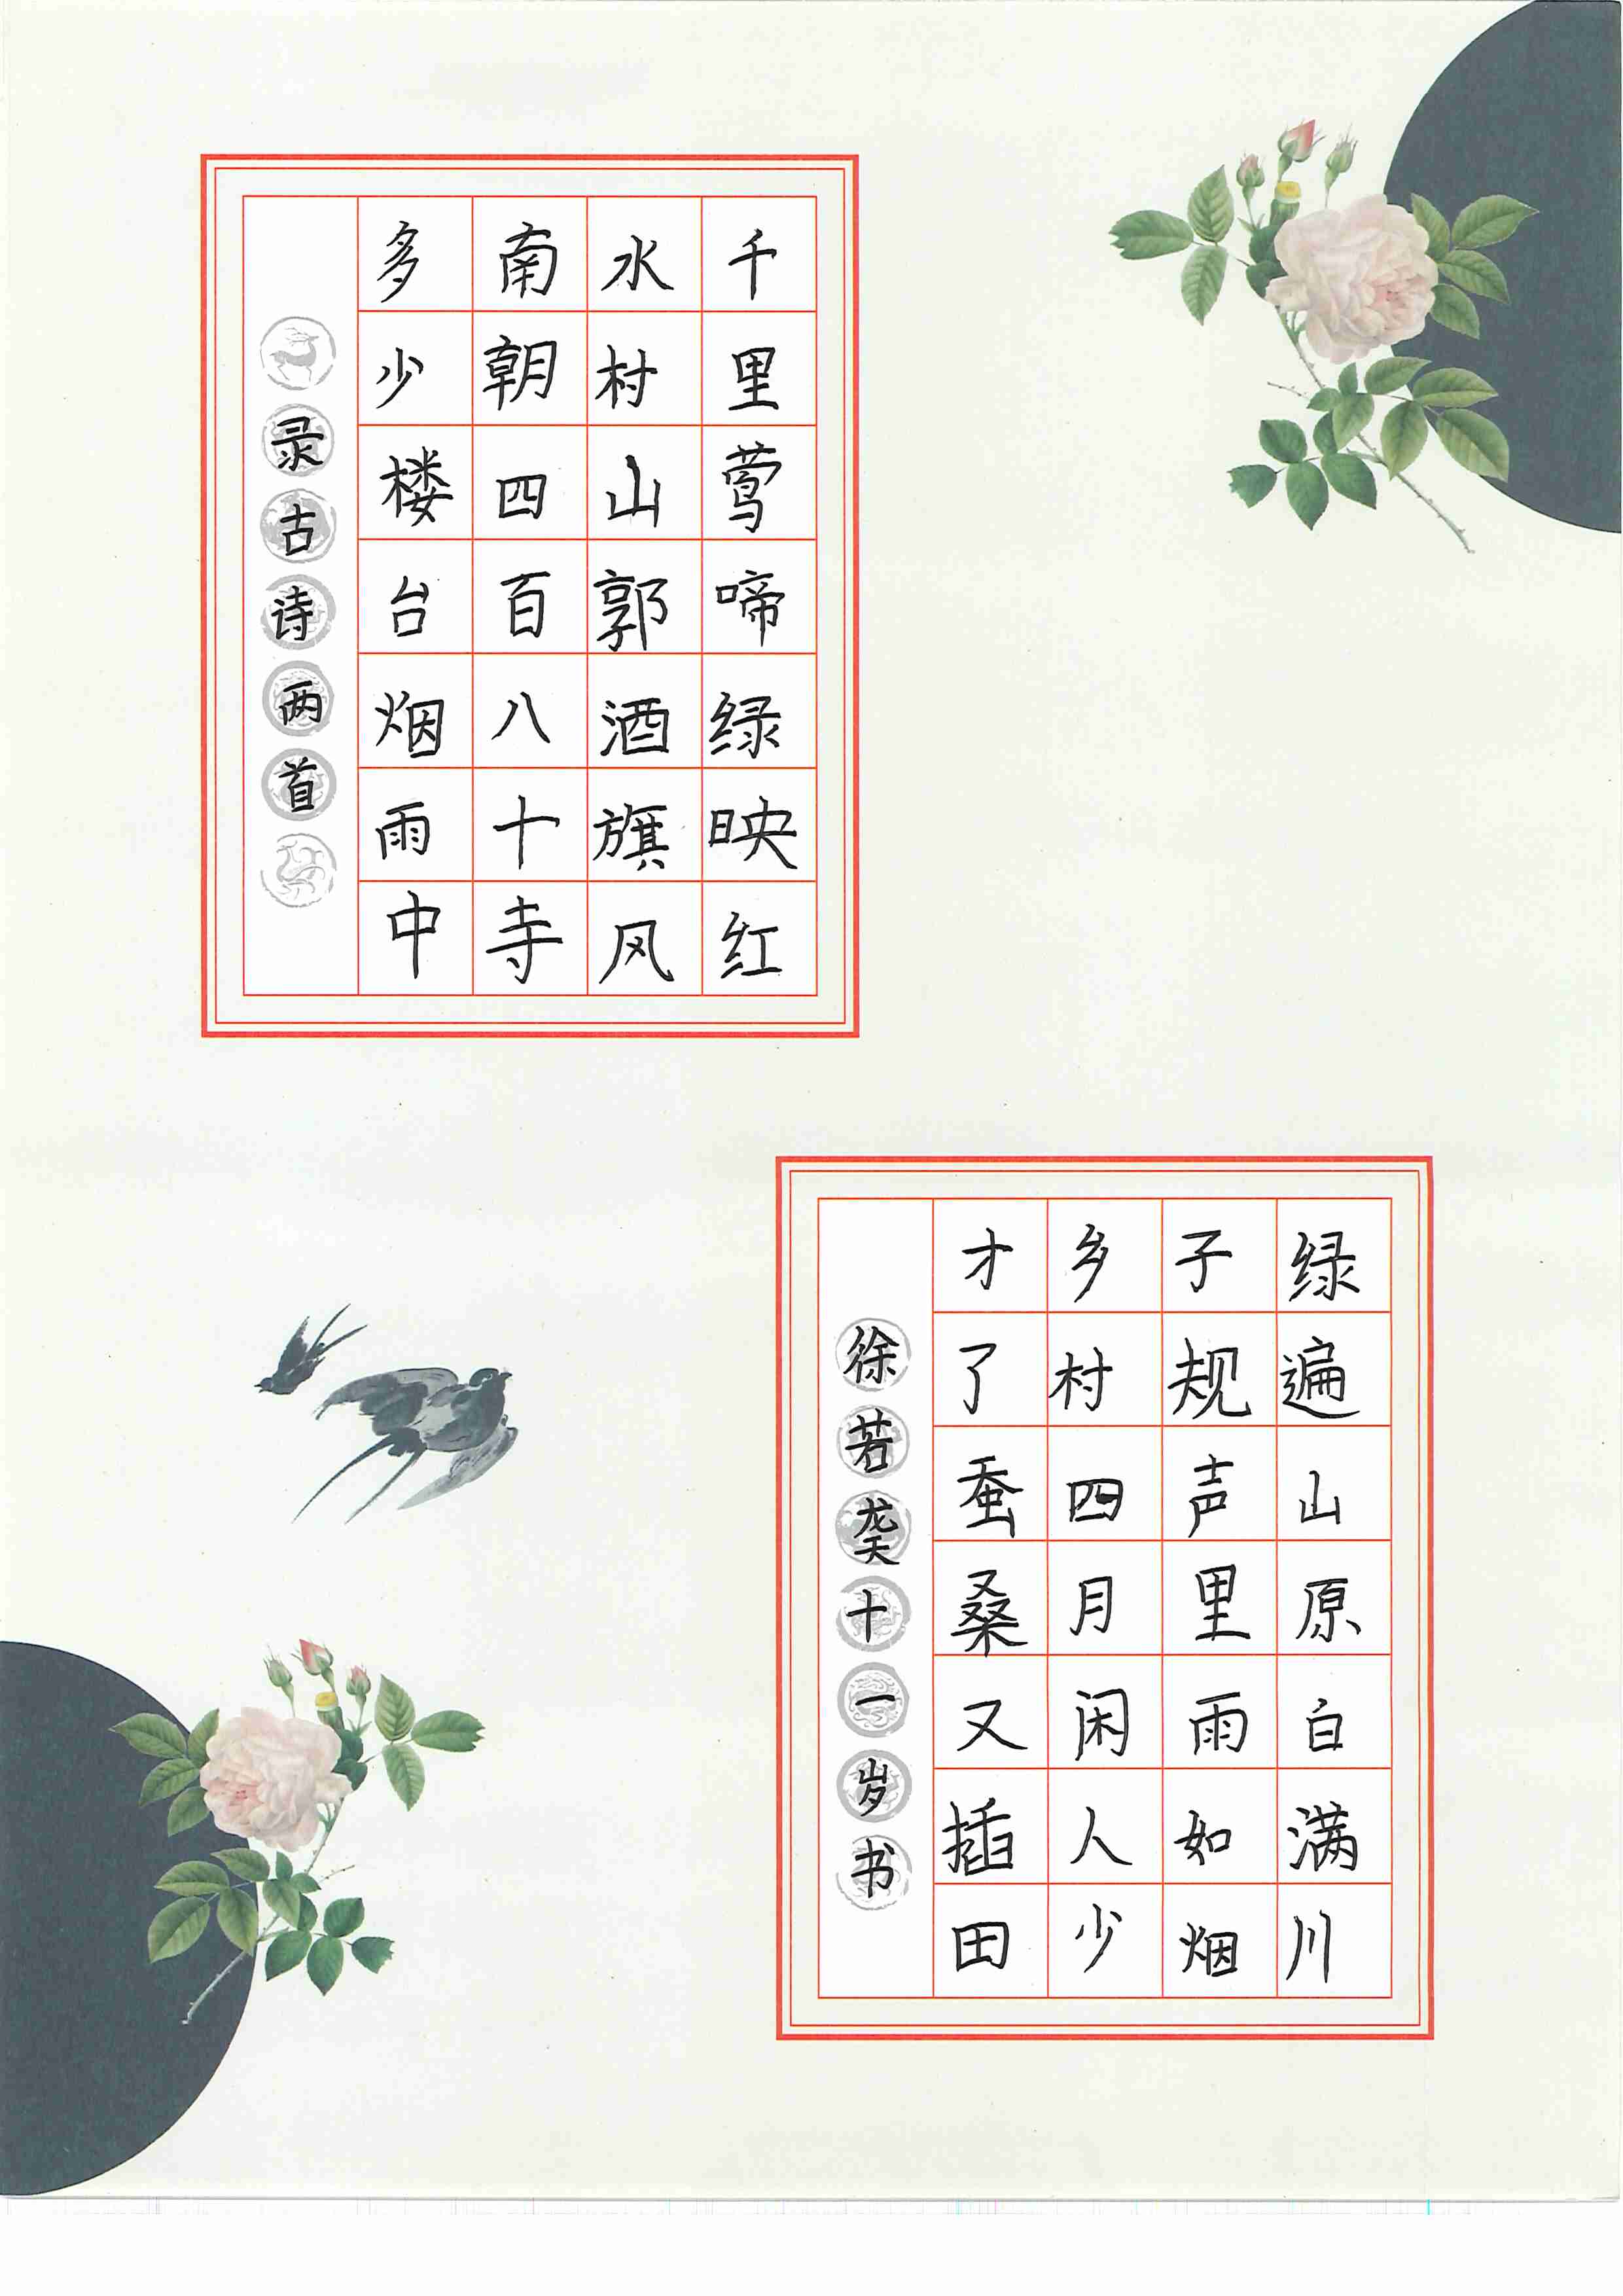 千里莺啼绿映红
水村山郭酒旗风
南朝四百八十寺
多少楼台烟雨中
录古诗两首
绿遍山原白满川
子规声里雨如烟
乡村四月闲人少
才了蚕桑又插田
徐若䶮十一岁书